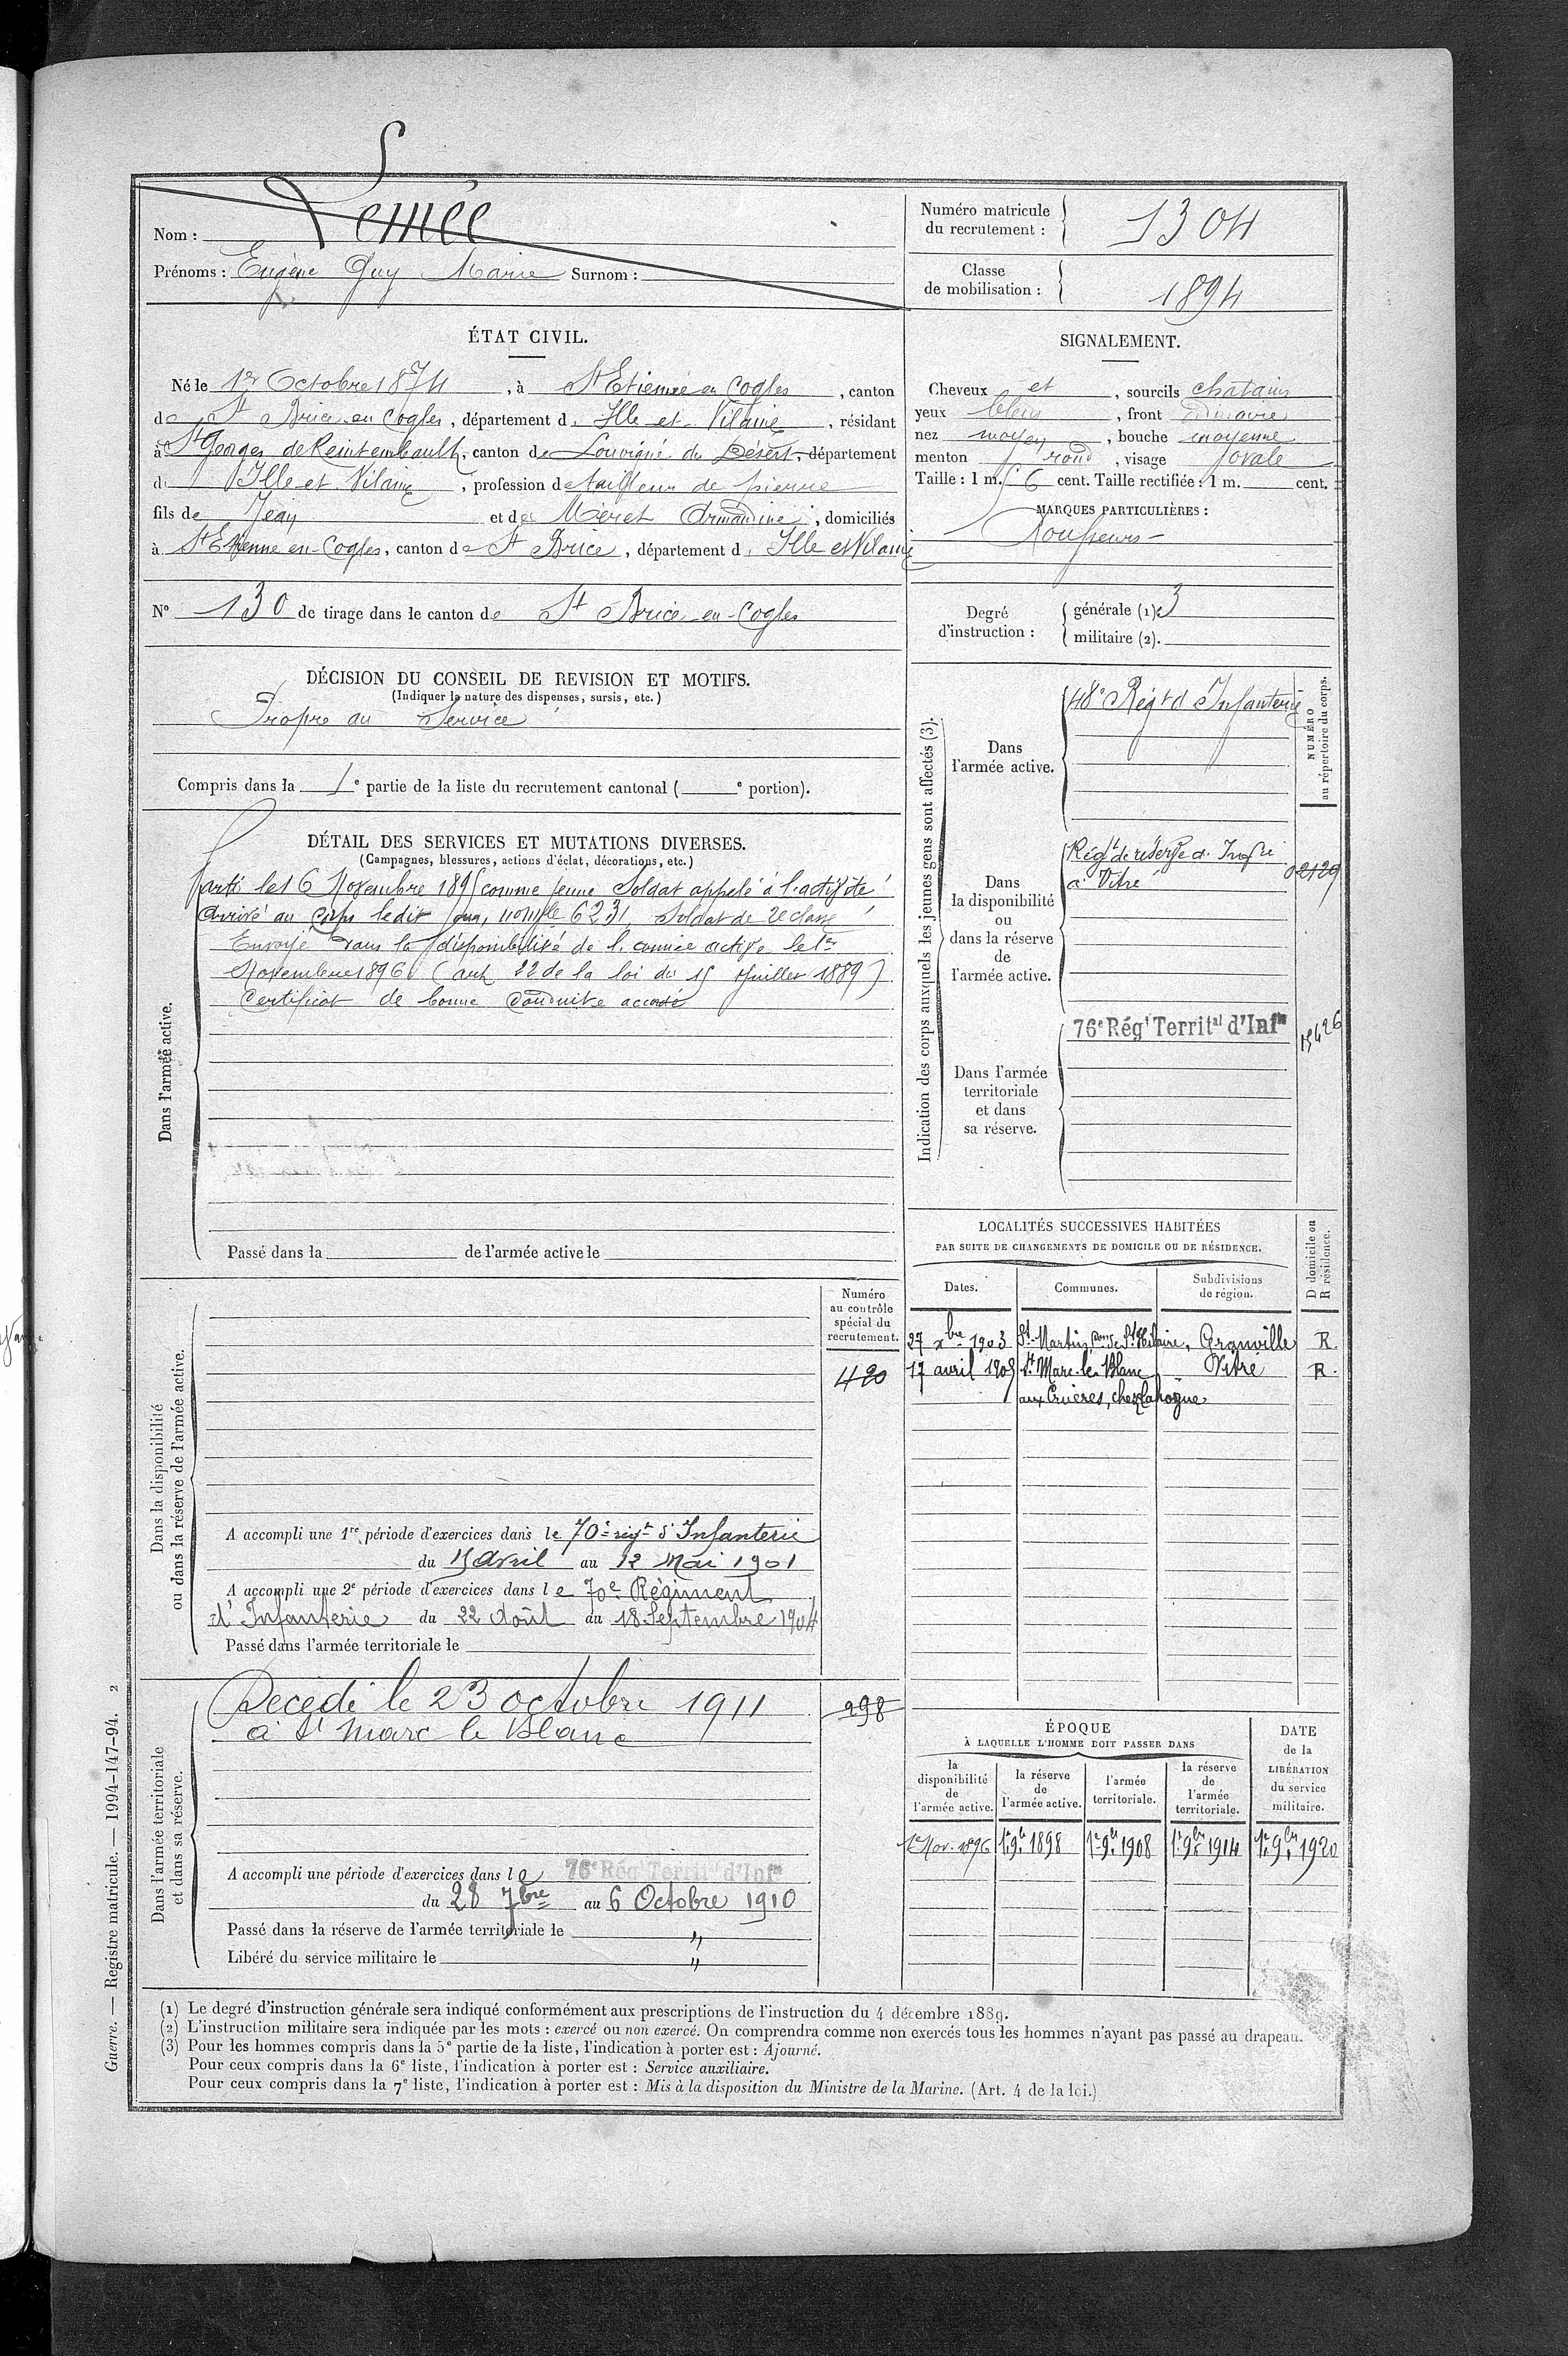 S
Nom : Lemée
Prénoms : Eugène Guy Marie Surnom :
Numéro matricule du recrutement : 1304
Classe de mobilisation : 1894
ÉTAT CIVIL.
Né le 1er Octobre 1874, à St Etienne en Cogles, canton
de St Brice en Cogles, département d'Ille et Vilaine, résidant
à St Georges de Reintembault, canton de Louvigné du Désert, département
d' Ille et Vilaine, profession de tailleur de pierre
fils de Jean et de Méret Armandine, domiciliés
à St Etienne en-Cogles, canton de St Brice, département d. Ille et Vilaine
N° 130 de tirage dans le canton de St Brice en-Cogles
SIGNALEMENT.
Cheveux et, sourcils chatains
yeux bleus, front ordinaire
nez moyen, bouche moyenne
menton rond, visage ovale
Taille : 1 m. 56 cent. Taille rectifiée : 1 m. cent.
MARQUES PARTICULIÈRES :
Degré d'instruction : générale (1). 3
militaire (2).
DÉCISION DU CONSEIL DE REVISION ET MOTIFS.
(Indiquer la nature des dispenses, sursis, etc.)
Propre au Service
Compris dans la 1e partie de la liste du recrutement cantonal ( e portion).
DÉTAIL DES SERVICES ET MUTATIONS DIVERSES.
(Campagnes, blessures, actions d'éclat, décorations, etc.)
Dans l'armée active.
Parti le 16 Novembre 1895 comme jeune Soldat appelé à l'activité
Arrivé au Corps ledit jour, 6231, Soldat de 2e classe
Envoyé dans la disponibilité de l'armée active le 1er
Novembre 1896 (art 22 de la loi du 15 Juillet 1889)
Certificat de bonne conduite accordé
Passé dans la de l'armée active le
Indication des corps auxquels les jeunes gens sont affectés (3).
NUMÉRO au répertoire du corps.
Dans l'armée active.
48e Régt d'Infanterie
Dans la disponibilité ou dans la réserve de l'armée active.
Régt de réserve d. Infie
à Vitré
02129
Dans l'armée territoriale et dans sa réserve.
76e Régt Territal d'Infie
15426
LOCALITÉS SUCCESSIVES HABITÉES
PAR SUITE DE CHANGEMENTS DE DOMICILE OU DE RÉSIDENCE.
Dates. Communes. Subdivisions de région. D domicile ou R résidence.
27 xbre 1903 St Martin, con de St Hilaire, Granville R.
17 avril 1905 St Marc-le-Blanc Vitré R.
chez Lahogue
Dans la disponibilité ou dans la réserve de l'armée active.
Numéro au contrôle spécial du recrutement.
420
A accompli une 1re période d'exercices dans le 70e régt d'Infanterie
du 15 Avril au 12 Mai 1901
A accompli une 2e période d'exercices dans le 70e Régiment
d'Infanterie du 22 Août au 18 Septembre 1904
Passé dans l'armée territoriale le
Dans l'armée territoriale et dans sa réserve.
Décédé le 23 octobre 1911
à St Marc le Blanc
298
A accompli une période d'exercices dans le 76e Régt Territal d'Infie
du 28 7bre au 6 Octobre 1910
Passé dans la réserve de l'armée territoriale le "
Libéré du service militaire le "
ÉPOQUE
À LAQUELLE L'HOMME DOIT PASSER DANS
la disponibilité de l'armée active. la réserve de l'armée active. l'armée territoriale. la réserve de l'armée territoriale. DATE de la LIBÉRATION du service militaire.
1er Nov. 1896 1er 9bre 1898 1er 9bre 1908 1er 9bre 1914 1er 9bre 1920
(1) Le degré d'instruction générale sera indiqué conformément aux prescriptions de l'instruction du 4 décembre 1889.
(2) L'instruction militaire sera indiquée par les mots : exercé ou non exercé. On comprendra comme non exercés tous les hommes n'ayant pas passé au drapeau.
(3) Pour les hommes compris dans la 5e partie de la liste, l'indication à porter est : Ajourné.
Pour ceux compris dans la 6e liste, l'indication à porter est : Service auxiliaire.
Pour ceux compris dans la 7e liste, l'indication à porter est : Mis à la disposition du Ministre de la Marine. (Art. 4 de la loi.)
Guerre. — Registre matricule. — 1994-147-94. 2